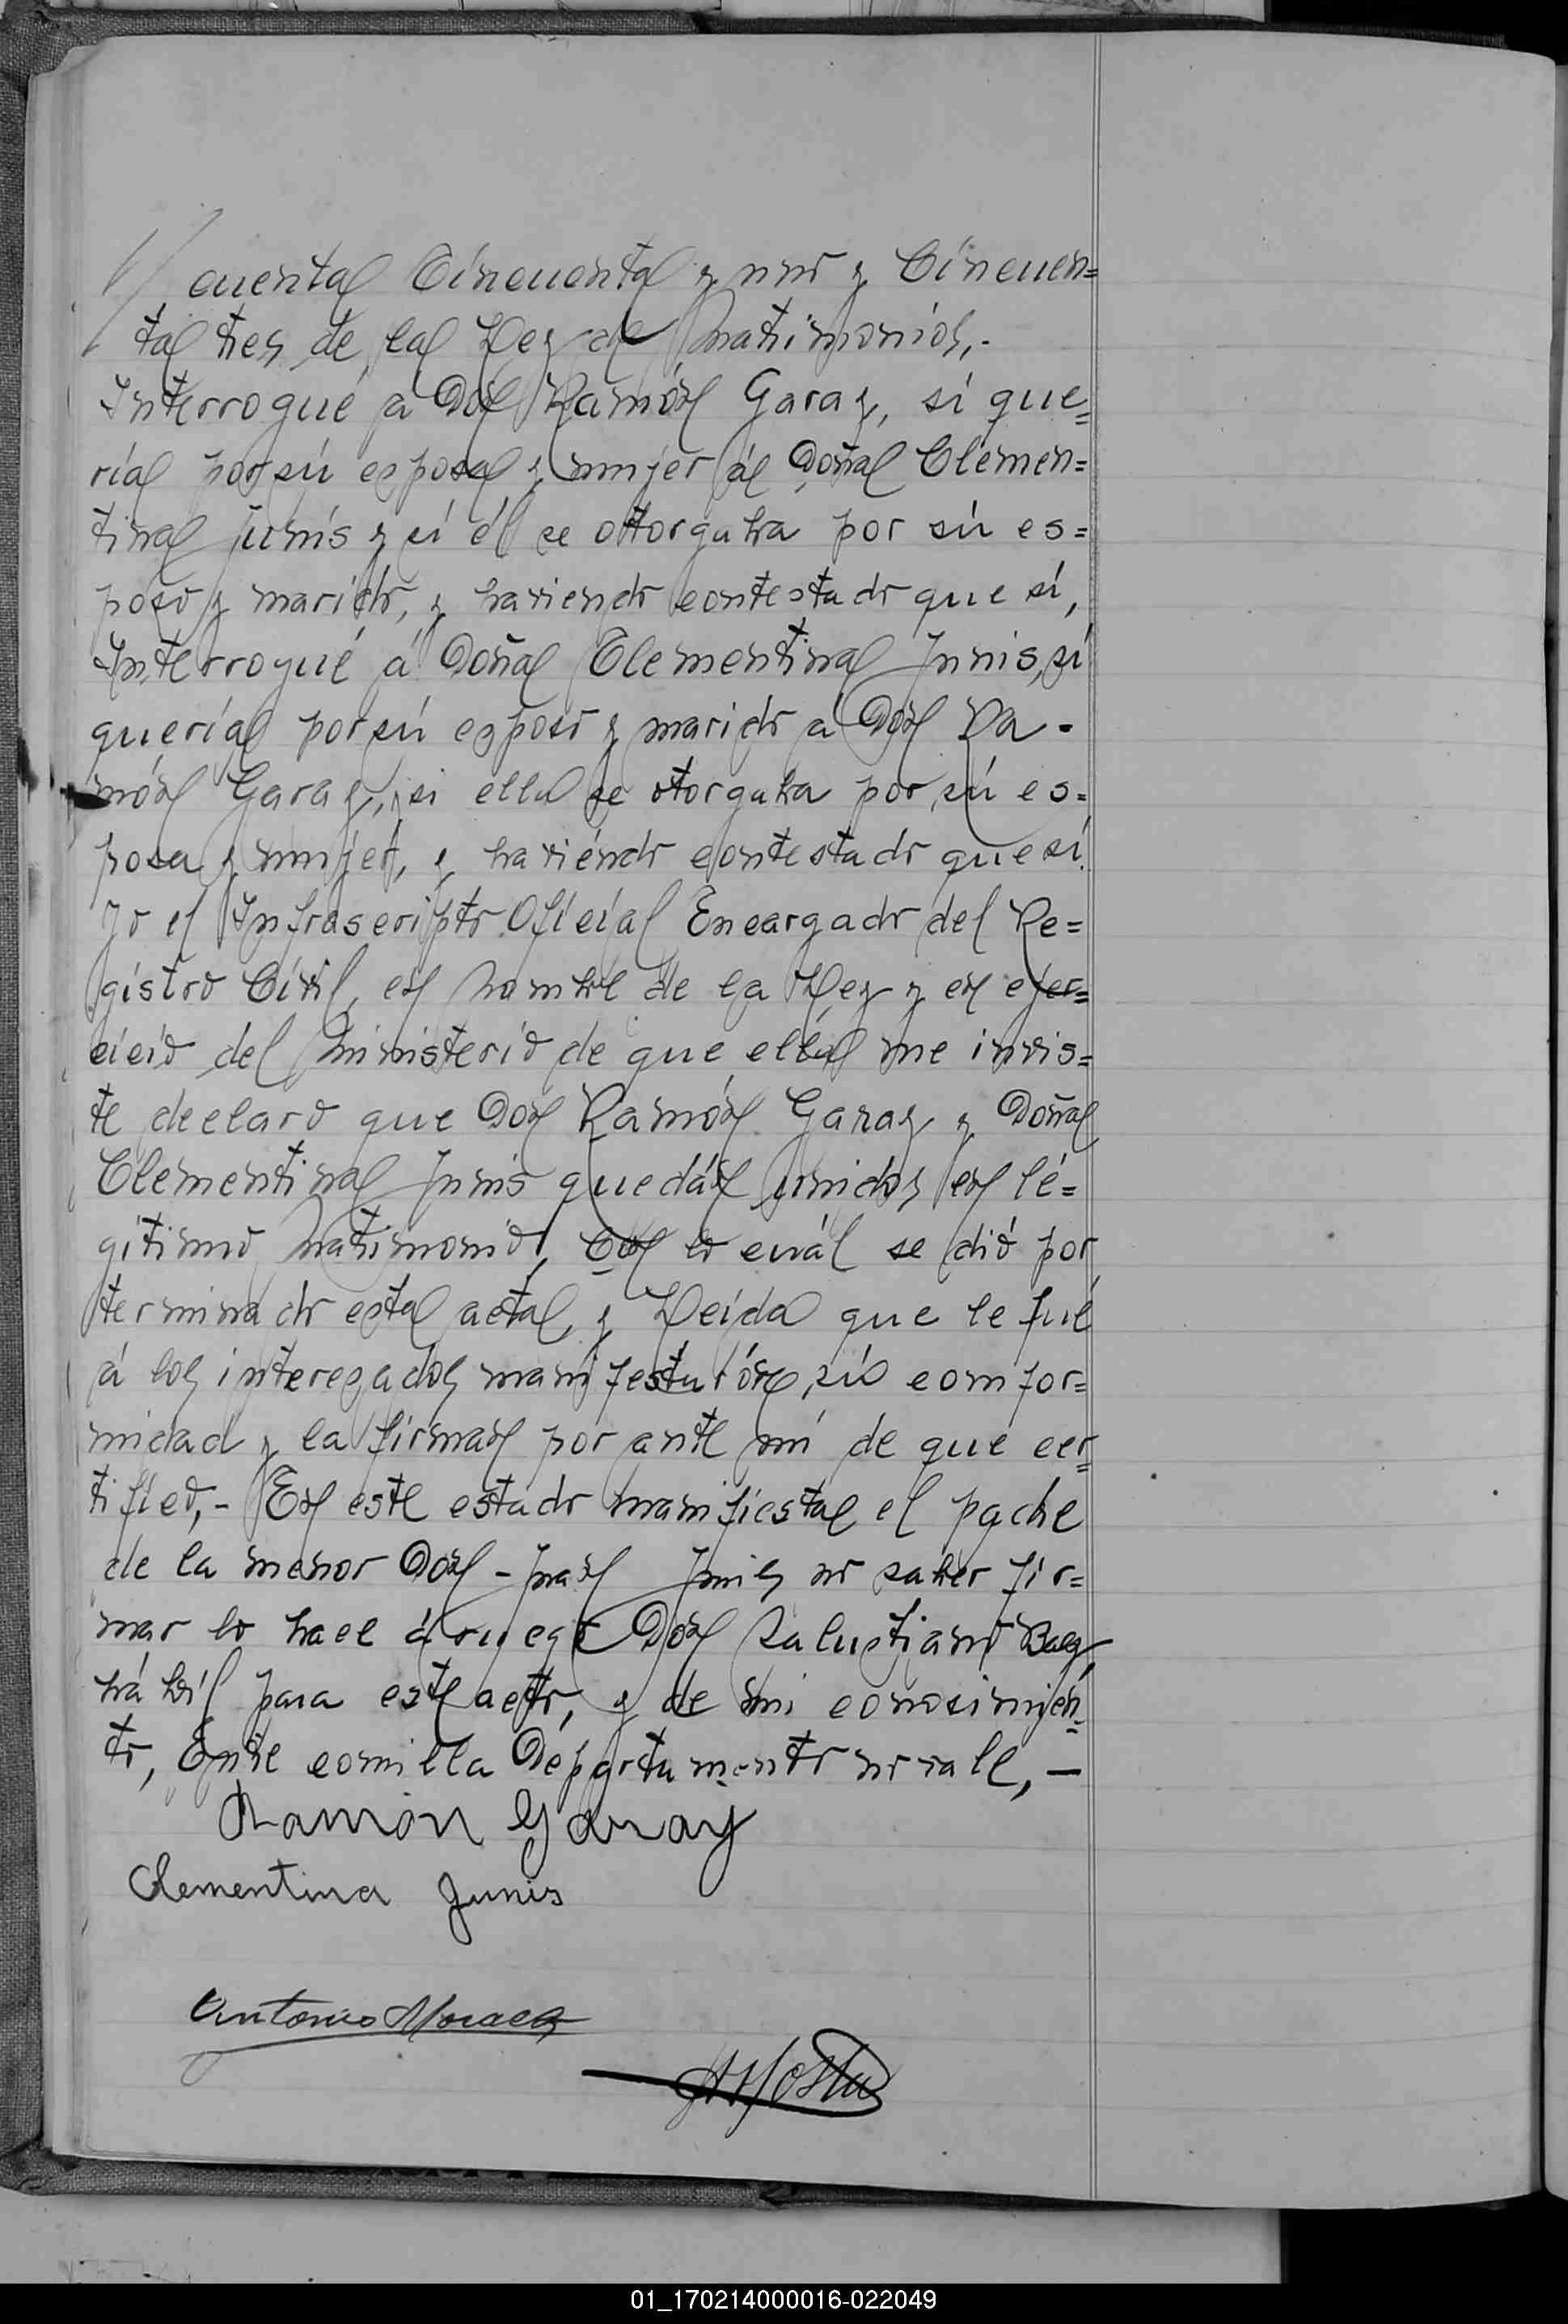 cuenta Cincuenta y uno y Cincuen=
ta tres de la Ley de Matrimonios,.-
Interrogué a Don Ramón Garay, sí que=
ría por sú esposa y mujer á Doña Clemen=
tina Junis y sí él se otorgaba por sú es=
poso y marido, y haviendo contestado que sí,
Interrogué á Doña Clementina Junis, sí
quería por sú esposo y marido a Don Ra-
món Garay, y si ella se otorgaba por sú es=
posa y mujer, y haviéndo contestado que sí.
Yo el Infrascripto Oficial Encargado del Re=
gistro Civil, en nombre de la Ley y en ejer=
cicio del ministerio de que ella me invis=
te declaro que Don Ramón Garay y Doña
Clementina Junis quedán unidos en lé=
gitimo matrimonio, Con lo cuál se dió por
terminado esta acta, y Leída que le fué
á los interesados manifestarón sú comfor=
midad y la firman por ante mí de que cer=
tifico,- En este estado manifiesta el padre
de la menor Don - Juan Junis no saber fir=
mar lo hace á ruego Don Salustiano Baez
hábil para este acto, y de mi conosimien=
to, Entre comilla Departamento no vale, —
Ramón Garay
Clementina Junis
Antonio Moraes